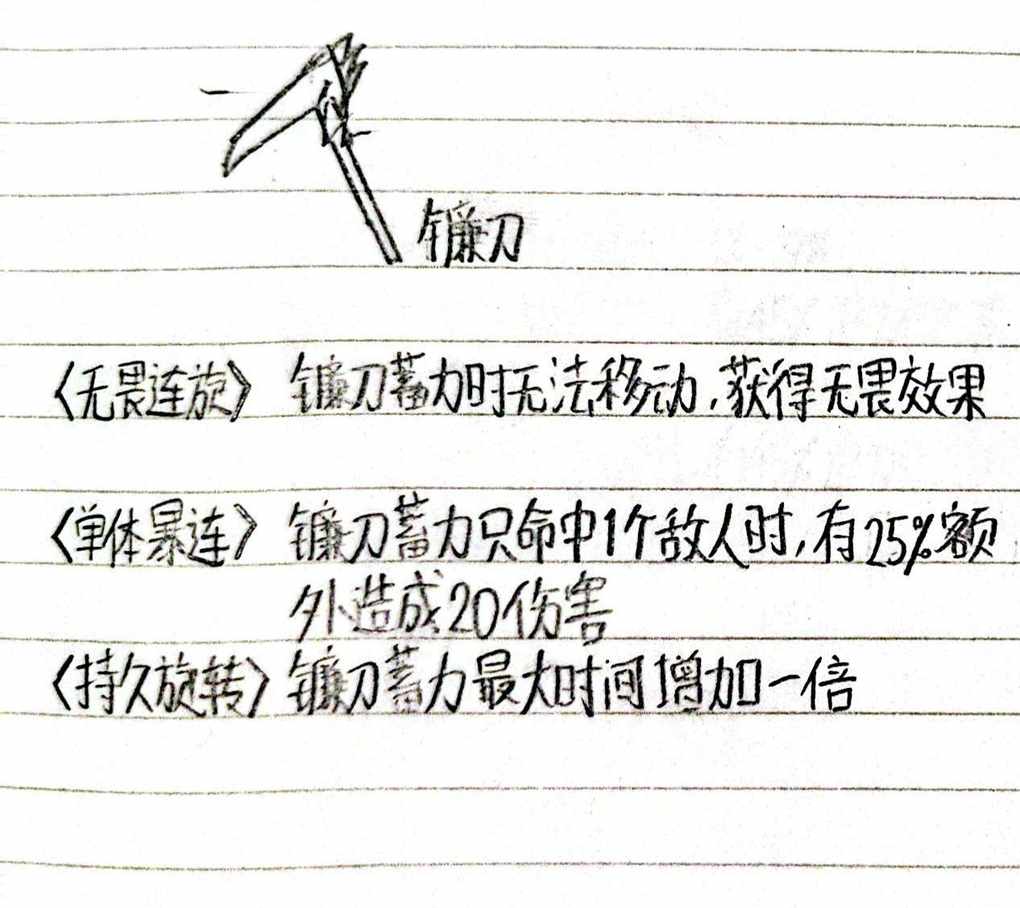 镰刀
〈无畏连旋〉 镰刀蓄力时无法移动,获得无畏效果
〈单体暴连〉 镰刀蓄力只命中1个敌人时,有25%额
外造成20伤害
〈持久旋转〉 镰刀蓄力最大时间增加一倍